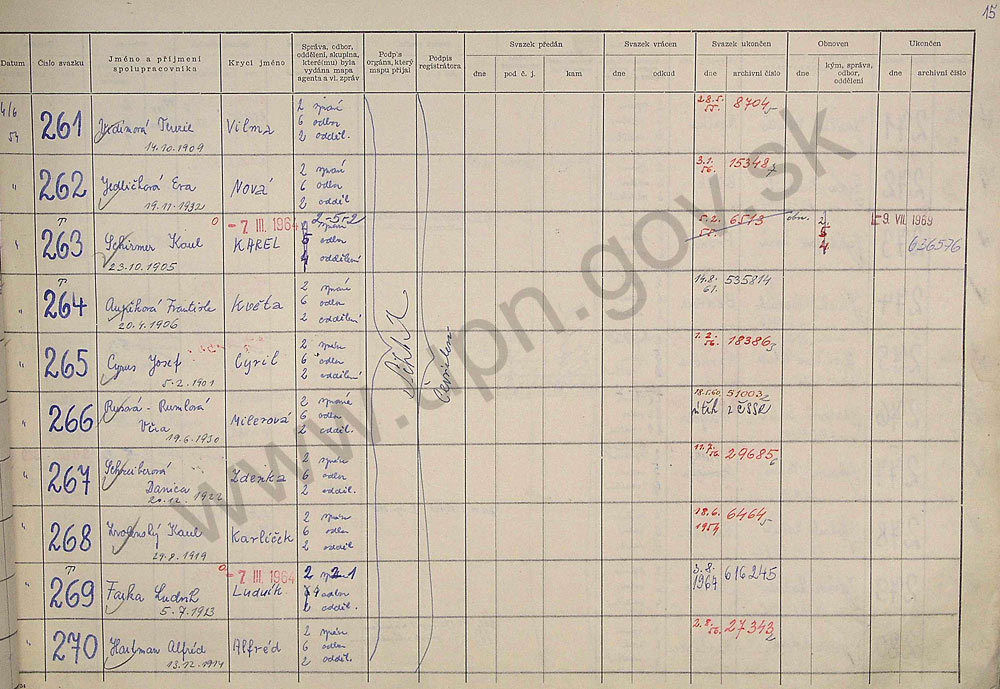 15
Datum
Číslo svazku
Jméno a příjmení
spolupracovníka
Krycí jméno
Správa, odbor,
oddělení, skupina,
které(mu) byla
vydána mapa
agenta a vl. zpráv
Podpis
orgána, který
mapu přijal
Podpis
registrátora
Svazek předán
dne
pod č. j.
kam
Svazek vrácen
dne
odkud
Svazek ukončen
dne
archivní číslo
Obnoven
dne
kým, správa,
odbor,
oddělení
Ukončen
dne
archivní číslo
4/6
54
261
14.10.1909
Vilma
2 správ
6 odbor
2 odděl.
28.5.
55.
8704
"
262
Jedličková Eva
19.11.1932
Nová
2 správ
6 odbor
2 odděl
3.1.
56.
15348
"
263
Schirmer Karel
23.10.1905
- 7. III. 1964
KAREL
2-5-2
správ
5 odbor
4 oddělení
5.2.
55.
6513
obn.
2
5
4
- 9. VII. 1969
636576
"
264
20.4.1906
Květa
2 správ
6 odbor
2 oddělení
14.8.
61.
535814
"
265
Cyrus Josef
5.2.1901
Cyril
2 správ
6 odbor
2 oddělení
1.2.
56.
18386
"
266
Rusová - Rumlová
Věra
19.6.1930
Milerová
2 správ
6 odbor
2 odděl.
18.1.60.
51003
útěk z ČSSR
"
267
Schreiberová
Danica
20.12.1922
Zdenka
2 správ
6 odbor
2 odděl.
11.7.
56.
29685
"
268
Zvolenský Karel
29.8.1919
Karlíček
2 správ
6 odbor
2 odděl
18.6.
1954
6464
"
269
Fajka Ludvík
5.7.1913
- 7. III. 1964
Ludvík
2 2 1
odbor
2 odděl.
3.8.
1964
616245
"
270
Hartman Alfréd
13.12.1914
Alfréd
2 správ
6 odbor
2 odděl.
2.8.
56.
27343
www.upn.gov.sk